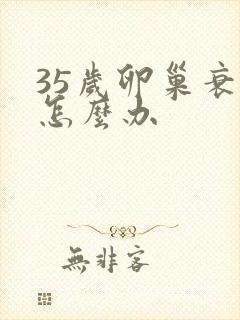 35歲卵巢衰
怎麼办
無非客